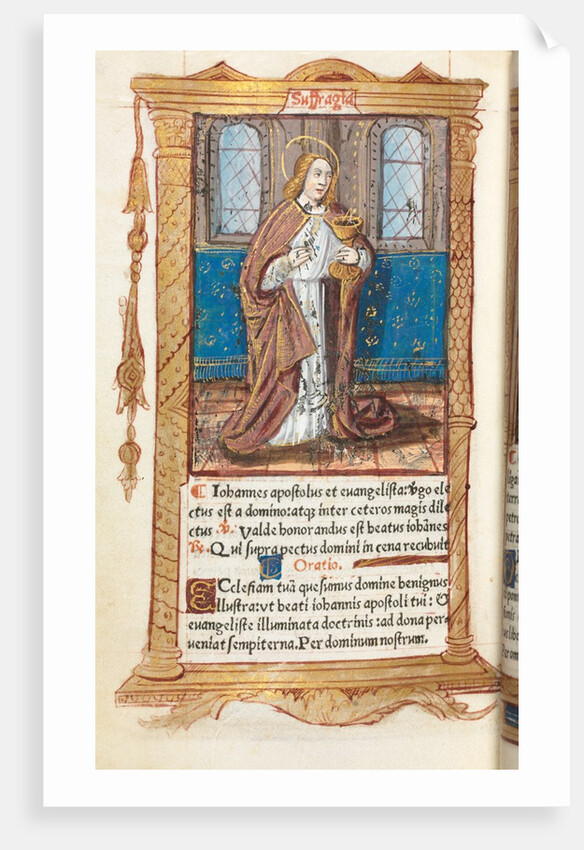 Suffragia
Iohannes apostolus et euangelista: vgo ele
ctus est a domino: atqȝ inter ceteros magis dile
ctus ℣. Valde honorandus est beatus iohānes
℟. Qui supra pectus domini in cena recubuit
Oratio.
ECclesiam tuā quesumus domine benignus
illustra: vt beati iohannis apostoli tui: &
euangeliste illuminata doctrinis: ad dona per
ueniat sempiterna. Per dominum nostrum.